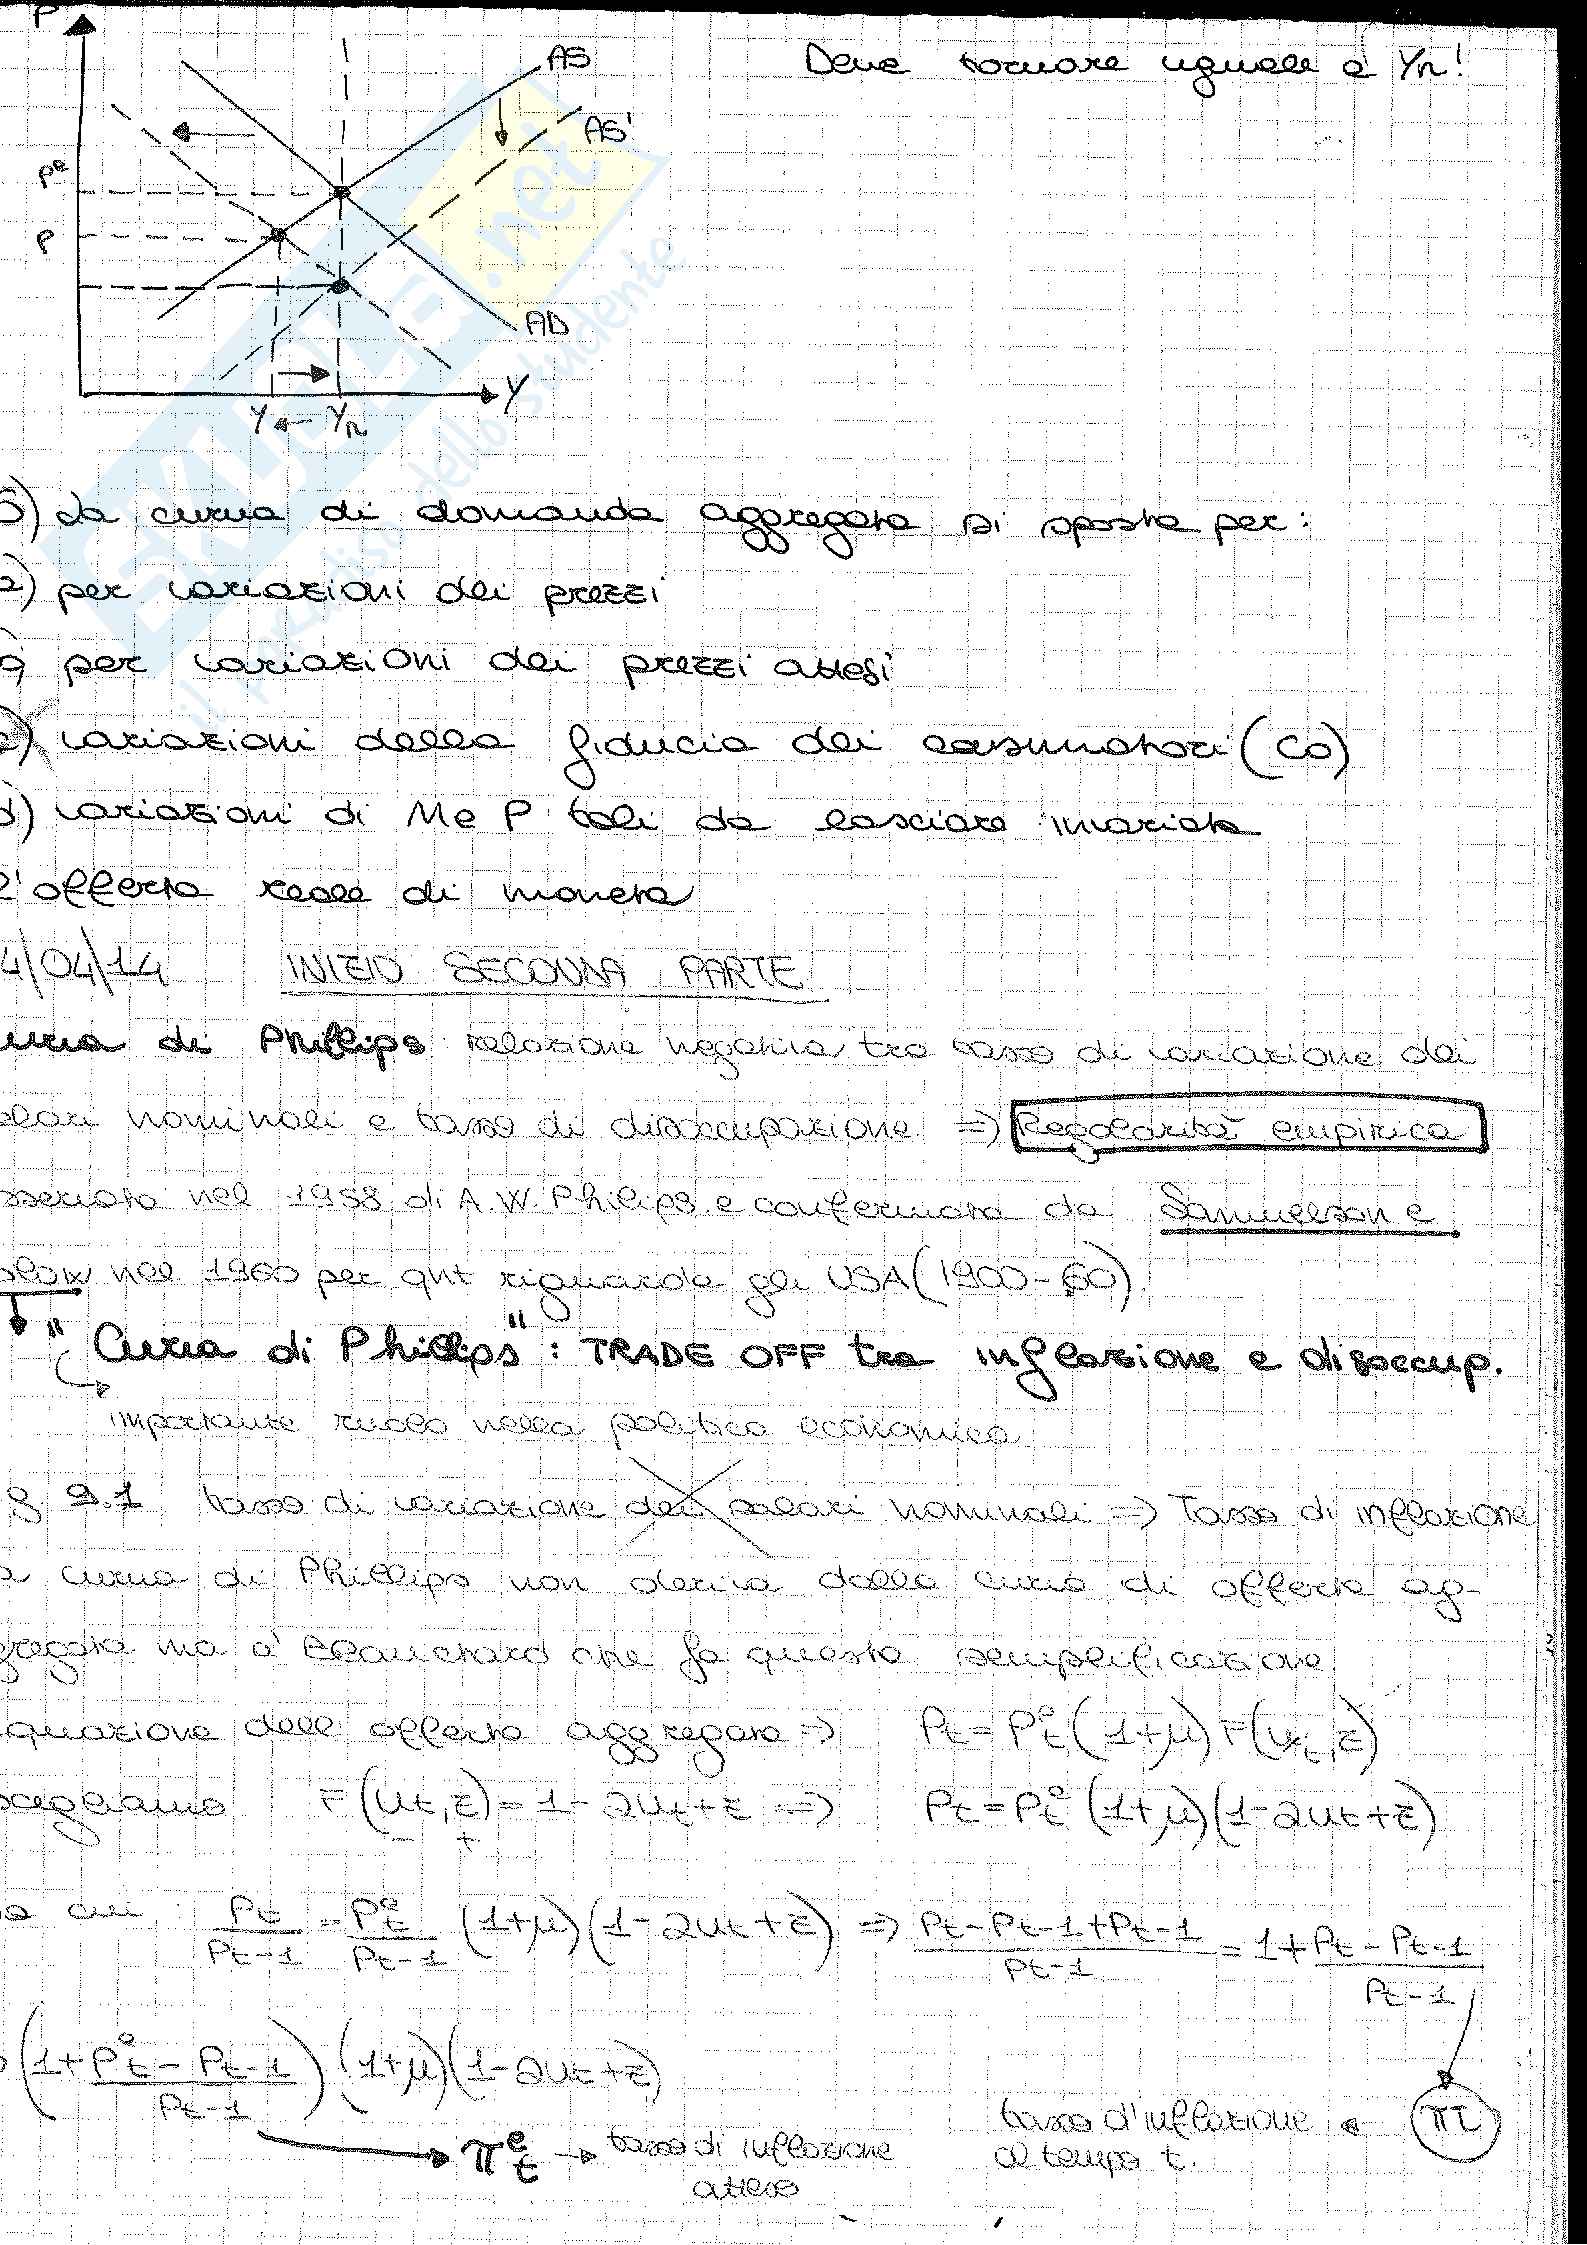 P
AS
Deve tornare uguale a Yn!
AS'
Pe
P
AD
Y
Y ← Yn
SKUOLA.net
il paradiso dello studente
5) La curva di domanda aggregata si sposta per:
a) per variazioni dei prezzi
per variazioni dei prezzi attesi
c) variazioni della fiducia dei consumatori (co)
d) variazioni di M e P tali da lasciare invariata
l'offerta reale di moneta
4/04/14 INIZIO SECONDA PARTE
urva di Phillips relazione negativa tra tasso di variazione dei
alari nominali e tasso di disoccupazione => Regolarità empirica
sservata nel 1958 di A.W. Philips e confermata da Samuelson e
olow nel 1960 per qnt riguarda gli USA (1900-60).
"Curva di Phillips": TRADE OFF tra inflazione e disoccup.
importante ruolo nella politica economica
g 9.1 tasso di variazione dei salari nominali => Tasso di inflazione
a curva di Phillips non deriva dalla curva di offerta ag-
gregata ma è Blanchard che fa questa semplificazione
quazione dell'offerta aggregata => Pt = Pᵉt (1+μ) F(ut, z)
scegliamo F(ut, z) = 1 - αut + z => Pt = Pᵉt (1+μ)(1-αut+z)
- +
a cui: Pt/Pt-1 = Pᵉt/Pt-1 (1+μ)(1-αut+z) => Pt-Pt-1+Pt-1/Pt-1 = 1+Pt-Pt-1/Pt-1
(1+Pᵉt-Pt-1/Pt-1) (1+μ)(1-αut+z)
πᵉt → tasso di inflazione atteso
tasso d'inflazione al tempo t. ← πt